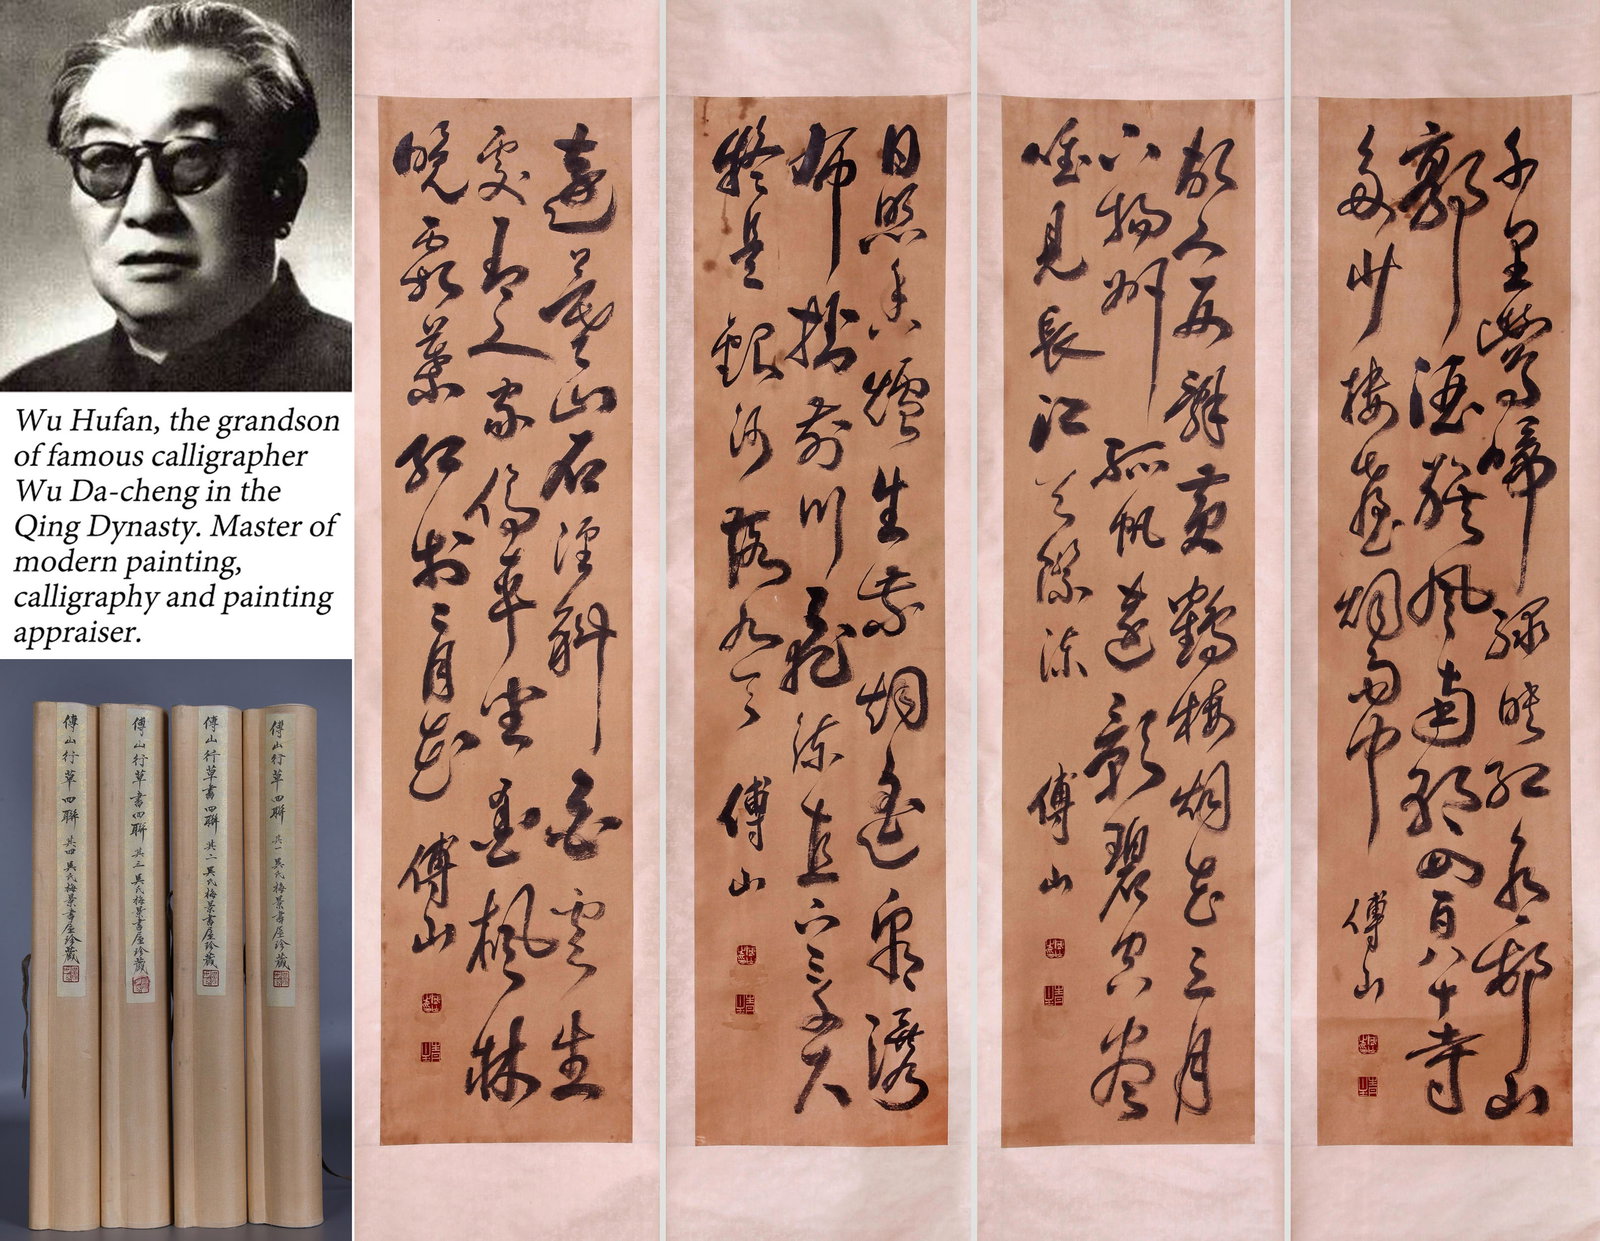 Wu Hufan, the grandson
of famous calligrapher
Wu Da-cheng in the
Qing Dynasty. Master of
modern painting,
calligraphy and painting
appraiser.
傅山行草四聯 其一 吳氏梅景書屋珍藏
傅山行草書四聯 其二 吳氏梅景書屋珍藏
傅山行草書四聯 其三 吳氏梅景書屋珍藏
傅山行草四聯 其四 吳氏梅景書屋珍藏
千里鶯啼綠映紅水村山
郭酒旗風南朝四百八十寺
多少樓臺烟雨中
傅山
故人西辭黃鶴樓烟花三月
下揚州孤帆遠影碧空盡
唯見長江天際流
傅山
日照香爐生紫烟遙看瀑
布掛前川飛流直下三千尺
疑是銀河落九天
傅山
遠上寒山石徑斜白雲生
處有人家停車坐愛楓林
晚霜葉紅於二月花
傅山